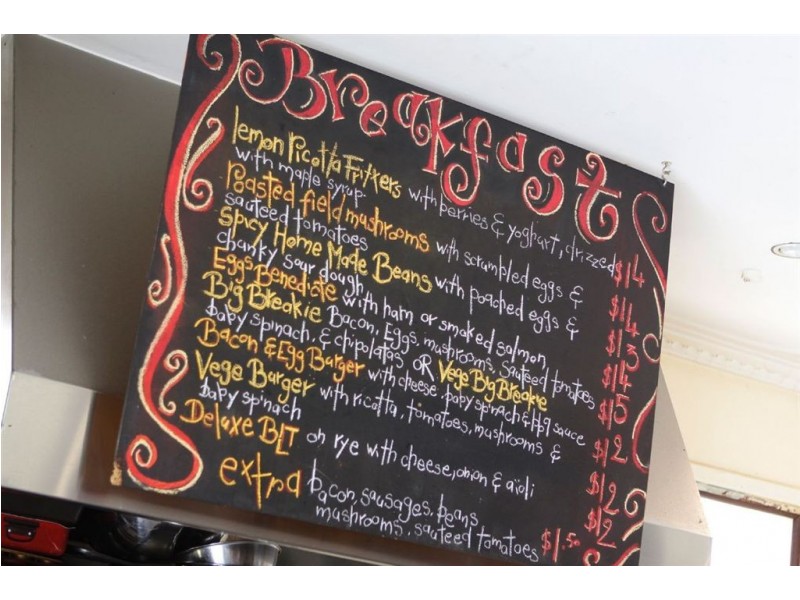 Breakfast
lemon Ricotta Fritters with berries & yoghurt, drizzed
with maple syrup $14
Roasted field mushrooms with scrumbled eggs &
sauteed tomatoes $14
Spicy Home Made Beans with poached eggs &
chunky sour dough $13
Eggs Benediate with ham or smoked salmon $14
Big Breakie Bacon, Eggs, mushrooms, sauteed tomatoes
baby spinach, & chipolatas OR Vege Big Breakie $15
Bacon & Egg Burger with cheese, baby spinach & bbq sauce $12
Vege Burger with ricotta, tomatoes, mushrooms &
baby spinach $12
Deluxe BLT on rye with cheese, onion & aioli $12
extra bacon, sausages, beans
mushrooms, sauteed tomatoes $1.50